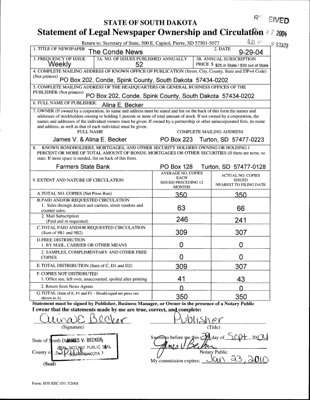 RECEIVED
STATE OF SOUTH DAKOTA
Statement of Legal Newspaper Ownership and Circulation
Return to: Secretary of State, 500 E. Capitol, Pierre, SD 57501-5077
1. TITLE OF NEWSPAPER The Conde News 2. DATE 9-29-04
3. FREQUENCY OF ISSUE Weekly
3A. NO. OF ISSUES PUBLISHED ANNUALLY 52
3B. ANNUAL SUBSCRIPTION PRICE $ $25 in State / $30 out of State
4. COMPLETE MAILING ADDRESS OF KNOWN OFFICE OF PUBLICATION (Street, City, County, State and ZIP+4 Code)
(Not printers) PO Box 202, Conde, Spink County, South Dakota 57434-0202
5. COMPLETE MAILING ADDRESS OF THE HEADQUARTERS OR GENERAL BUSINESS OFFICES OF THE
PUBLISHER (Not printers) PO Box 202, Conde, Spink County, South Dakota 57434-0202
6. FULL NAME OF PUBLISHER: Alina E. Becker
7. OWNER (If owned by a corporation, its name and address must be stated and listed on the back of this form the names and
addresses of stockholders owning or holding 1 percent or more of total amount of stock. If not owned by a corporation, the
names and addresses of the individual owners must be given. If owned by a partnership or other unincorporated firm, its name
and address, as well as that of each individual must be given.
FULL NAME COMPLETE MAILING ADDRESS
James V. & Alina E. Becker PO Box 223 Turton, SD 57477-0223
8. KNOWN BONDHOLDERS, MORTGAGES, AND OTHER SECURITY HOLDERS OWNING OR HOLDING 1
PERCENT OR MORE OF TOTAL AMOUNT OF BONDS, MORTGAGES OR OTHER SECURITIES (If there are none, so
state. If more space is needed, list on back of this form.
Farmers State Bank PO Box 128 Turton, SD 57477-0128
9. EXTENT AND NATURE OF CIRCULATION
AVERAGE NO. COPIES EACH ISSUED PRECEDING 12 MONTHS
ACTUAL NO. COPIES ISSUED NEAREST TO FILING DATE
A. TOTAL NO. COPIES (Net Press Run) 350 350
B. PAID AND/OR REQUESTED CIRCULATION
1. Sales through dealers and carriers, street vendors and
counter sales. 63 66
2. Mail Subscription
(Paid and/or requested) 246 241
C. TOTAL PAID AND/OR REQUESTED CIRCULATION
(Sum of 9B1 and 9B2) 309 307
D. FREE DISTRIBUTION
1. BY MAIL, CARRIER OR OTHER MEANS 0 0
2. SAMPLES, COMPLIMENTARY AND OTHER FREE
COPIES 0 0
E. TOTAL DISTRIBUTION (Sum of C, D1 and D2) 309 307
F. COPIES NOT DISTRIBUTED
1. Office use, left over, unaccounted, spoiled after printing 41 43
2. Return from News Agents 0 0
G. TOTAL (Sum of E, F1 and F2 – Should equal net press run
shown in A) 350 350
Statement must be signed by Publisher, Business Manager, or Owner in the presence of a Notary Public
I swear that the statements made by me are true, correct, and complete:
Alina E. Becker Publisher
(Signature) (Title)
State of South Dakota
JAMES V. BECKER
NOTARY PUBLIC SEAL
County of Spink
(Seal)
Sworn to before me this day of Sept, 2004
James V. Becker
Notary Public
My commission expires: Jan 23, 2010
Form: SOS REC 051 7/2004